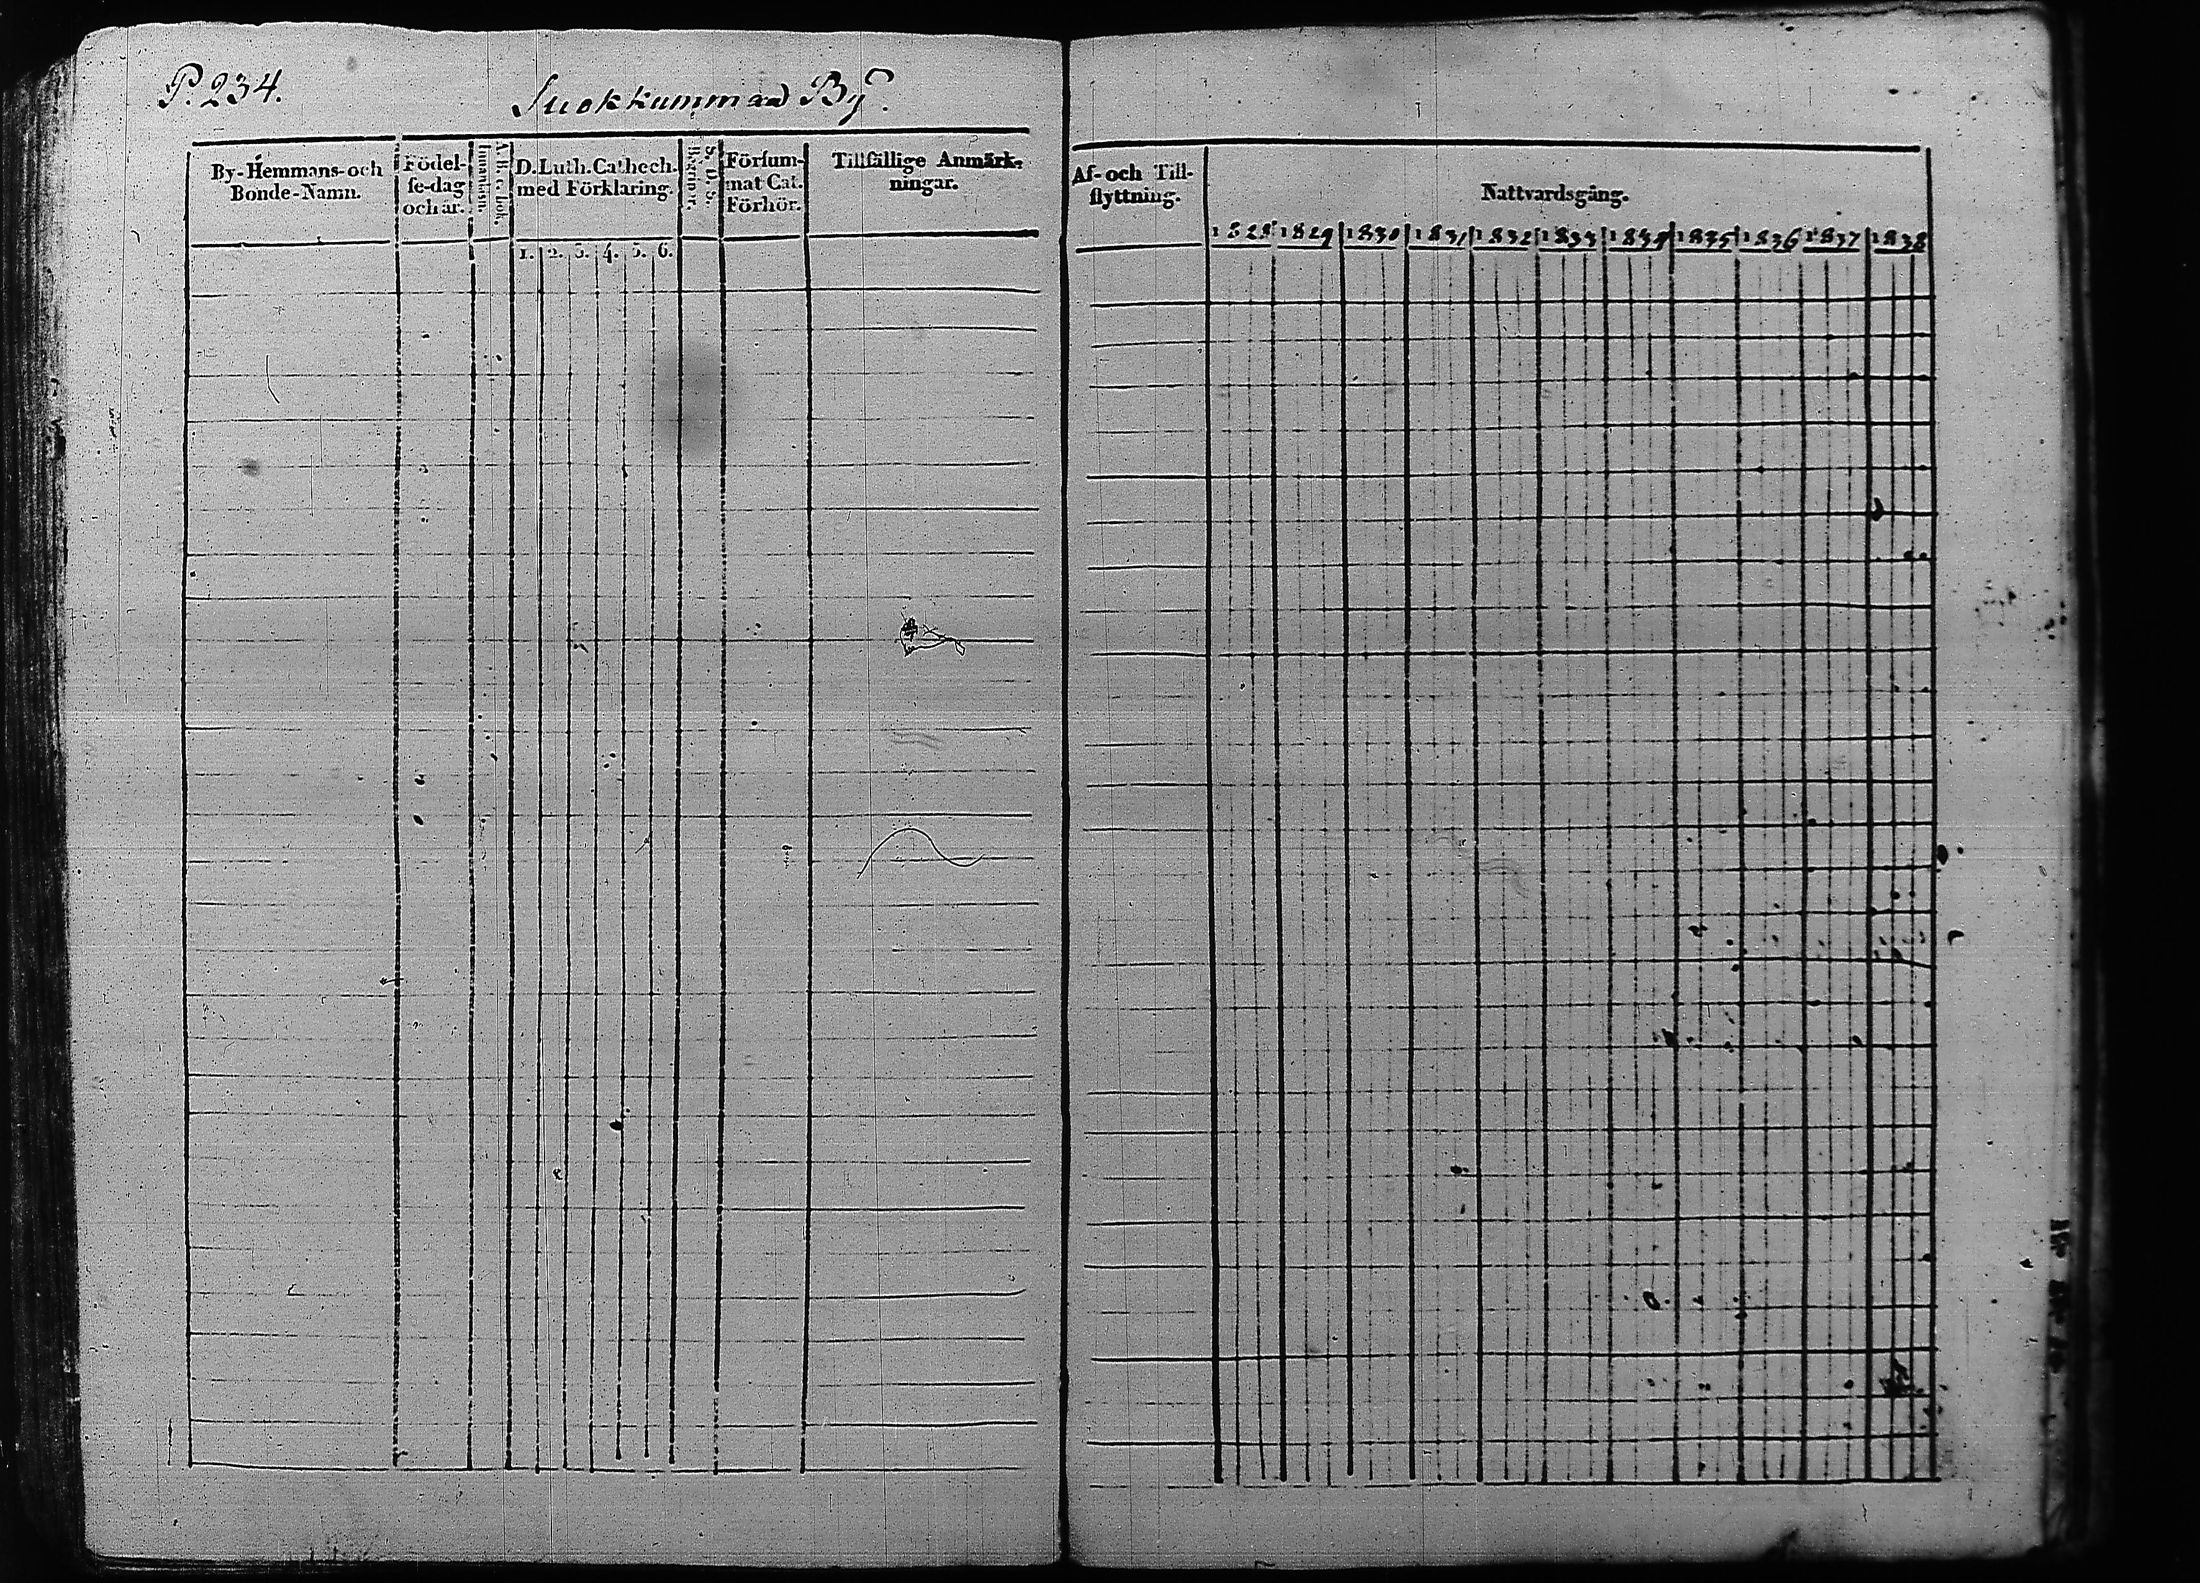 P. 234.
Suokkummaa By.
By-Hemmans-och
Bonde-Namn.
Födel-
se-dag
och år.
A. B. C. bok.
Innantill.
D. Luth. Cathech.
med Förklaring.
1. 2. 3. 4. 5. 6.
S. D. S.
Begrip.
Försum-
mat Cat.
Förhör.
Tillfällige Anmärk-
ningar.
Af- och Till-
flyttning.
Nattvardsgång.
1828 1829 1830 1831 1832 1833 1834 1835 1836 1837 1838